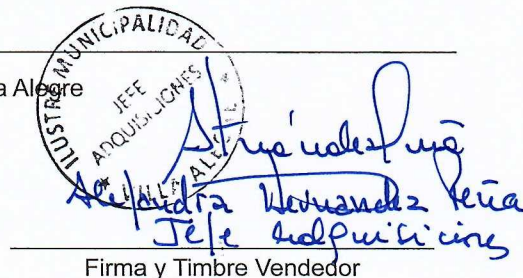 ILUSTRE MUNICIPALIDAD
a Alegre
JEFE
ADQUISICIONES
* VILLA ALEGRE *
Alejandra Hernandez Peña
Jefe Adquisiciones
Firma y Timbre Vendedor